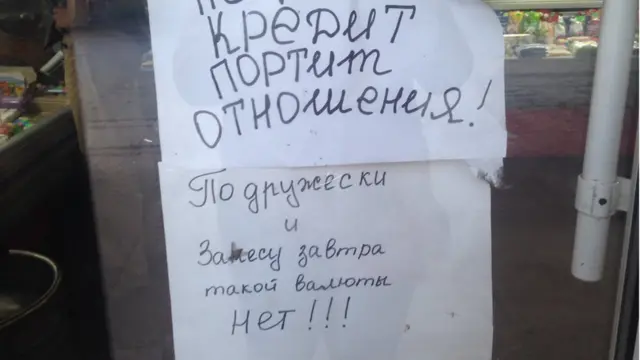 КРЕДИТ
ПОРТИТ
ОТНОШЕНИЯ!
По дружески
и
Занесу завтра
такой валюты
НЕТ!!!